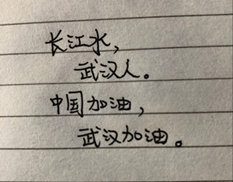 长江水，
武汉人。
中国加油，
武汉加油。